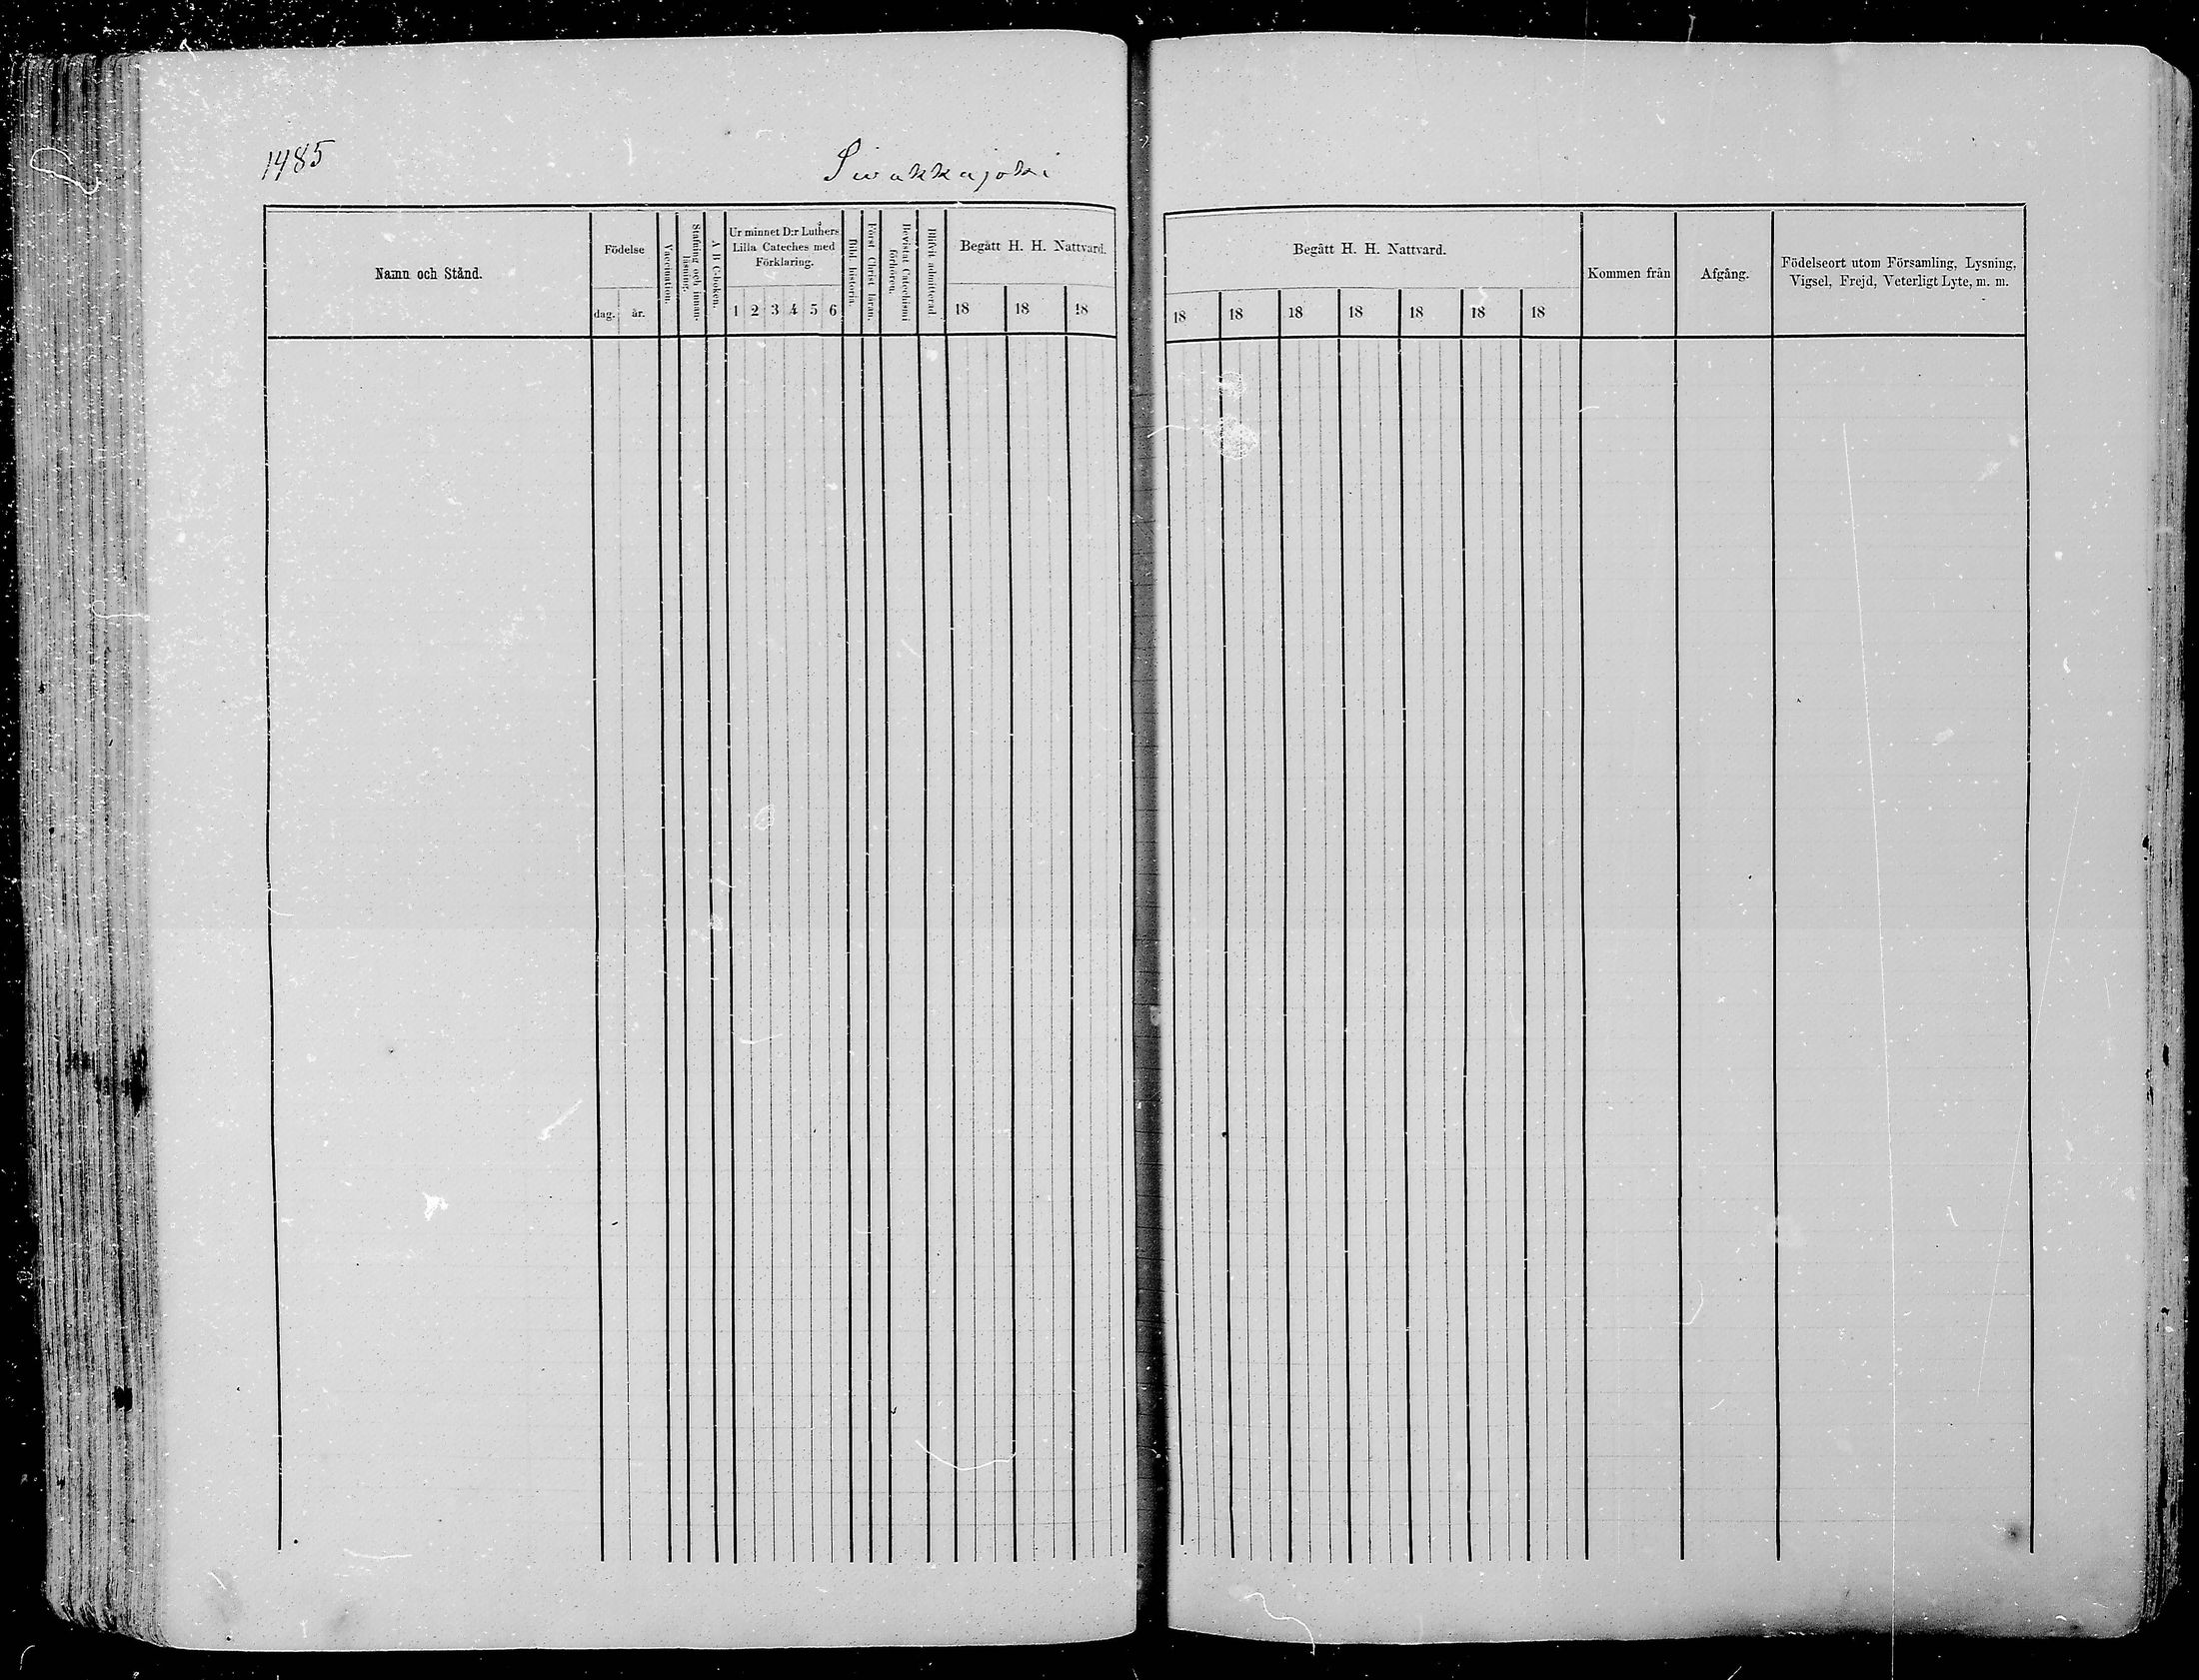 1485
Siwakkajoki
Namn och Stånd.
Födelse
dag. år.
Vaccination.
Stafning och innan-
läsning.
A B C-boken.
Ur minnet D:r Luthers
Lilla Cateches med
Förklaring.
1 2 3 4 5 6
Bibl. historia.
Först. Christ. läran.
Bevistat Catechismi
förhören.
Blifvit admitterad
Begått H. H. Nattvard.
18 18 18
Begått H. H. Nattvard.
18 18 18 18 18 18 18
Kommen från
Afgång.
Födelseort utom Församling, Lysning,
Vigsel, Frejd, Veterligt Lyte, m. m.